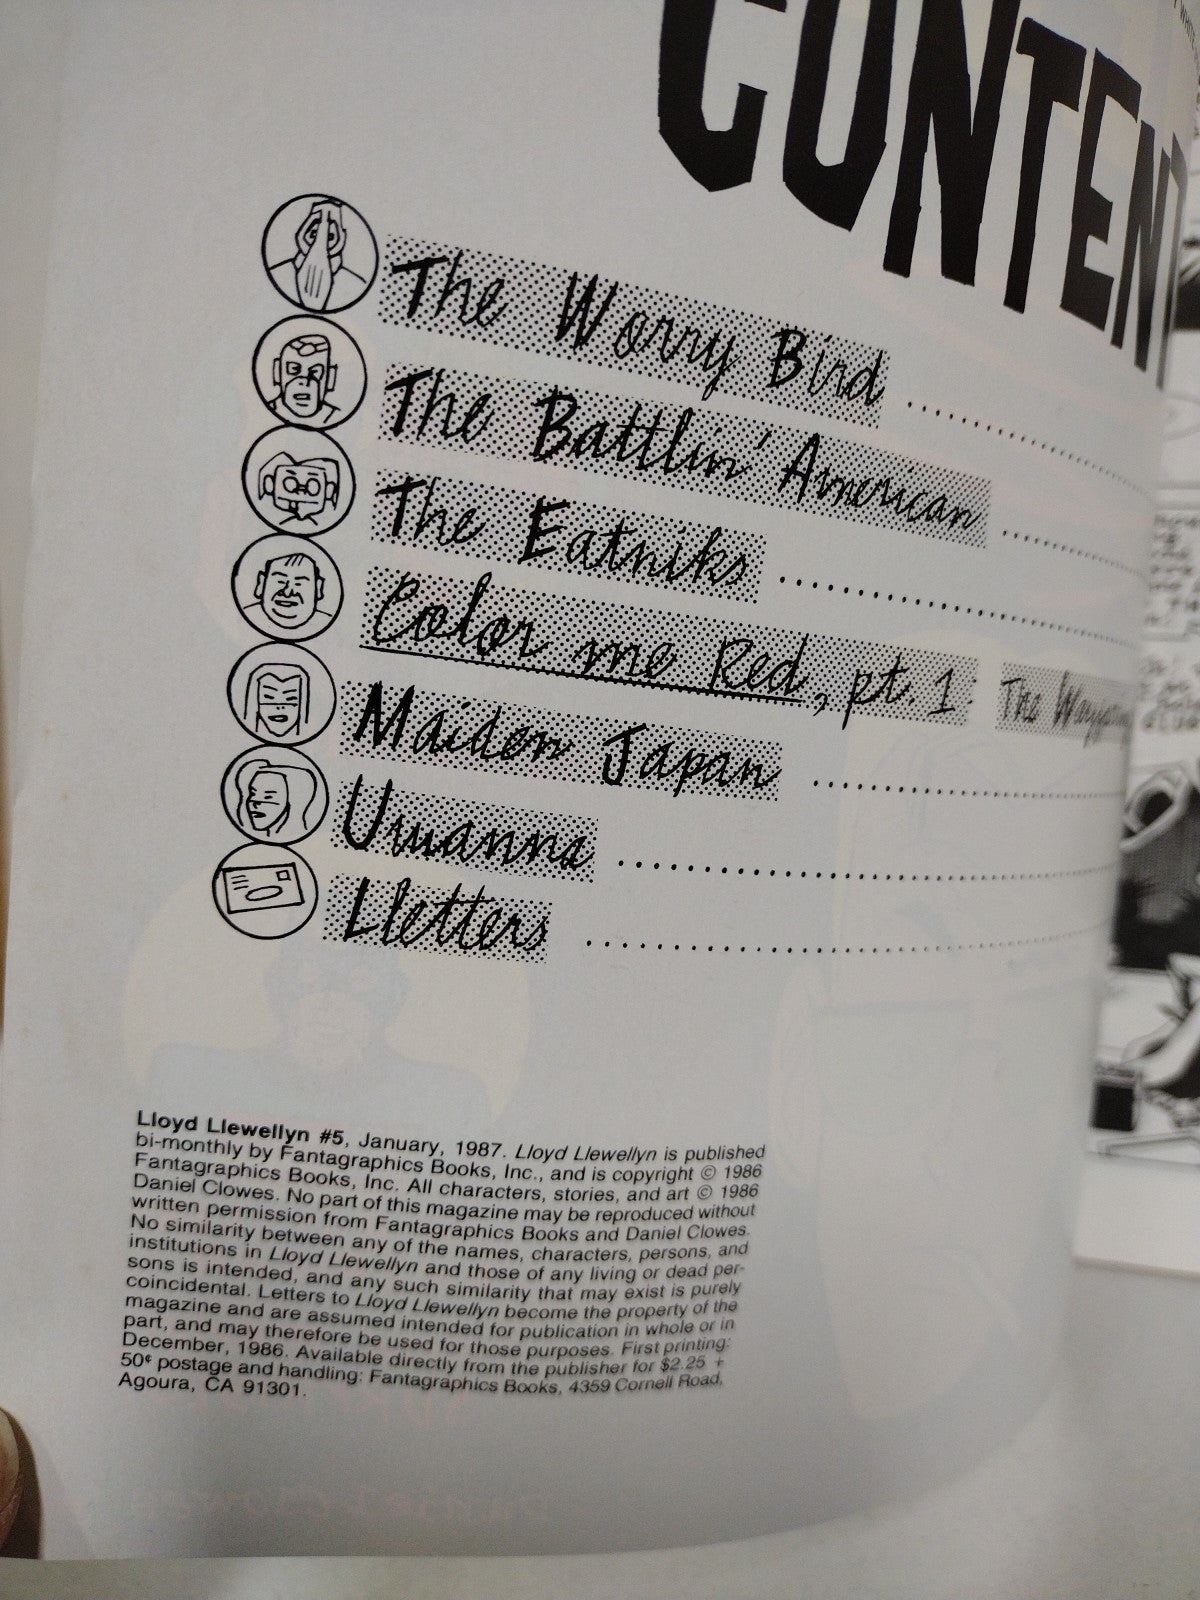 CONTENT
The Worry Bird
The Battlin' American
The Eatniks
Color me Red, pt. 1: The
Maiden Japan
Uwanna
Lletters
Lloyd Llewellyn #5, January, 1987. Lloyd Llewellyn is published
bi-monthly by Fantagraphics Books, Inc., and is copyright © 1986
Fantagraphics Books, Inc. All characters, stories, and art © 1986
Daniel Clowes. No part of this magazine may be reproduced without
written permission from Fantagraphics Books and Daniel Clowes.
No similarity between any of the names, characters, persons, and
institutions in Lloyd Llewellyn and those of any living or dead per-
sons is intended, and any such similarity that may exist is purely
coincidental. Letters to Lloyd Llewellyn become the property of the
magazine and are assumed intended for publication in whole or in
part, and may therefore be used for those purposes. First printing:
December, 1986. Available directly from the publisher for $2.25 +
50¢ postage and handling: Fantagraphics Books, 4359 Cornell Road,
Agoura, CA 91301.